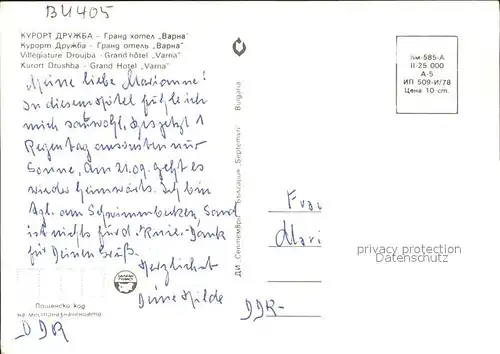 BU405
КУРОРТ ДРУЖБА – Гранд хотел „Варна"
Курорт Дружба – Гранд отель „Варна"
Villégiature Droujba – Grand hôtel „Varna"
Kurort Drushba – Grand Hotel „Varna"
Meine liebe Marianne!
In diesem Hotel fühle ich
mich sauwohl, bis jetzt 1
Regentag ansonsten nur
Sonne, am 21.09. geht es
wieder heimwärts. Ich bin
tgl. am Schwimmbecken, Sand
ist nichts für d. Knie. Dank
für Deinen Gruß.
Herzlichst
Deine Hilde
Пощенски код
на местоназначението
DDR
ДИ „Септември" България Septemvri Bulgaria
Ям-585-А
II-25 000
А-5
ИП 509-И/78
Цена 10 ст.
Frau
Mari
privacy protection
Datenschutz
DDR-